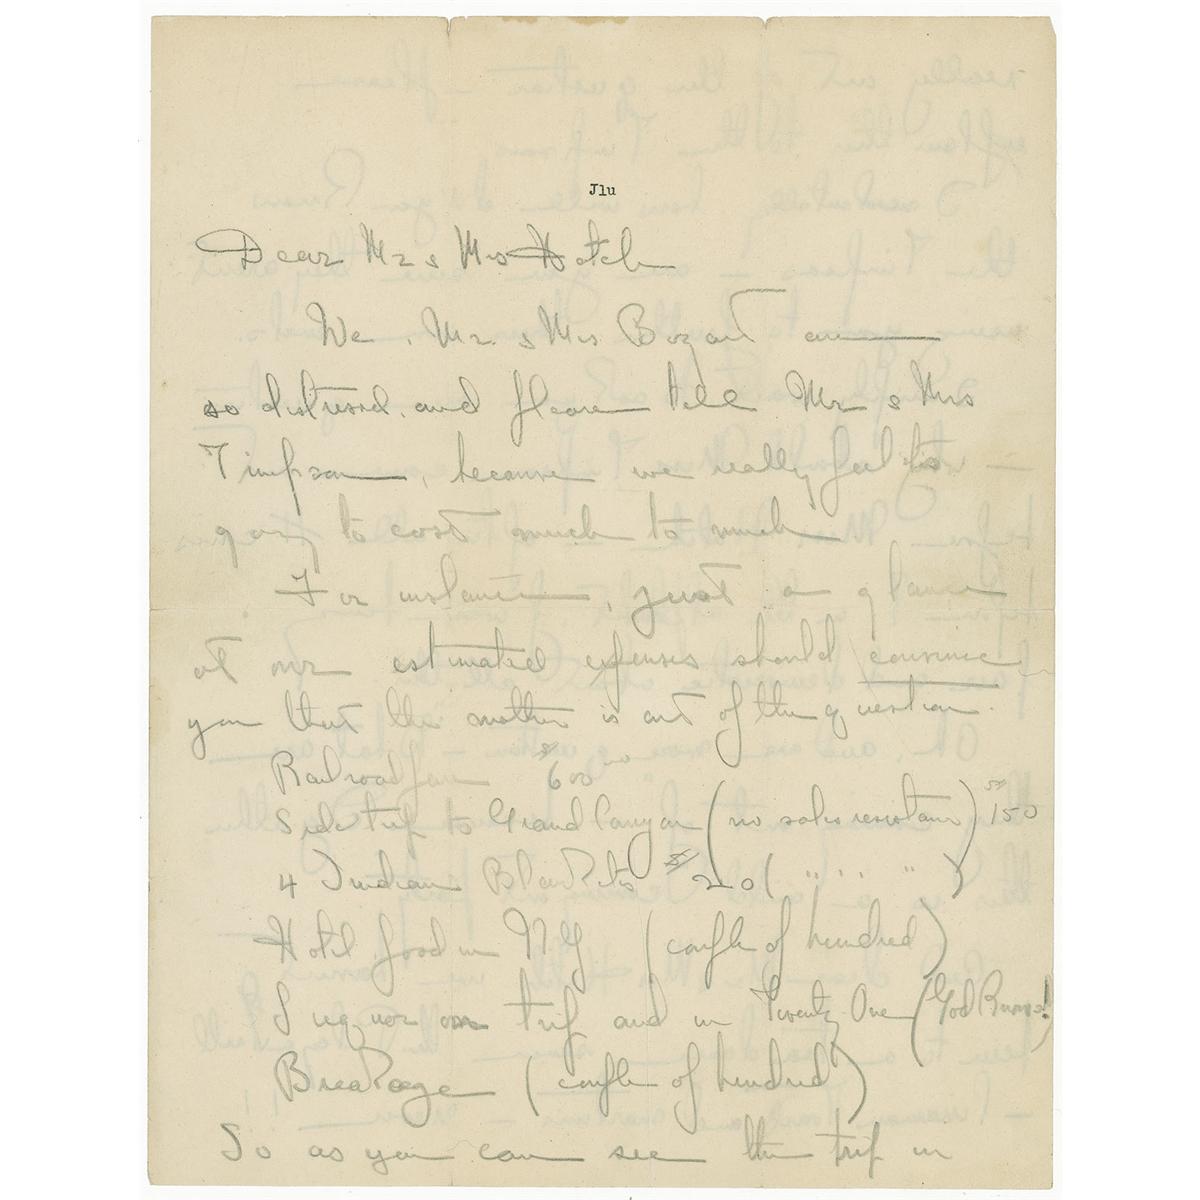 Jlu
Dear Mr & Mrs Hatch
We, Mr. & Mrs Bogart are
so distressed, and please tell Mr & Mrs
Timpson, because we really feel its
going to cost much to much
For instance, just a glance
at our estimated expenses should convince
you that the matter is out of the question.
Railroad fare $600
Side trip to Grand Canyon (no sales resistance) $150
4 Indian Blankets $20 ( " " " )
Hotel, food in NY (couple of hundred)
Liquor on trip and in Twenty-One (God knows!)
Breakage (couple of hundred)
So as you can see the trip is